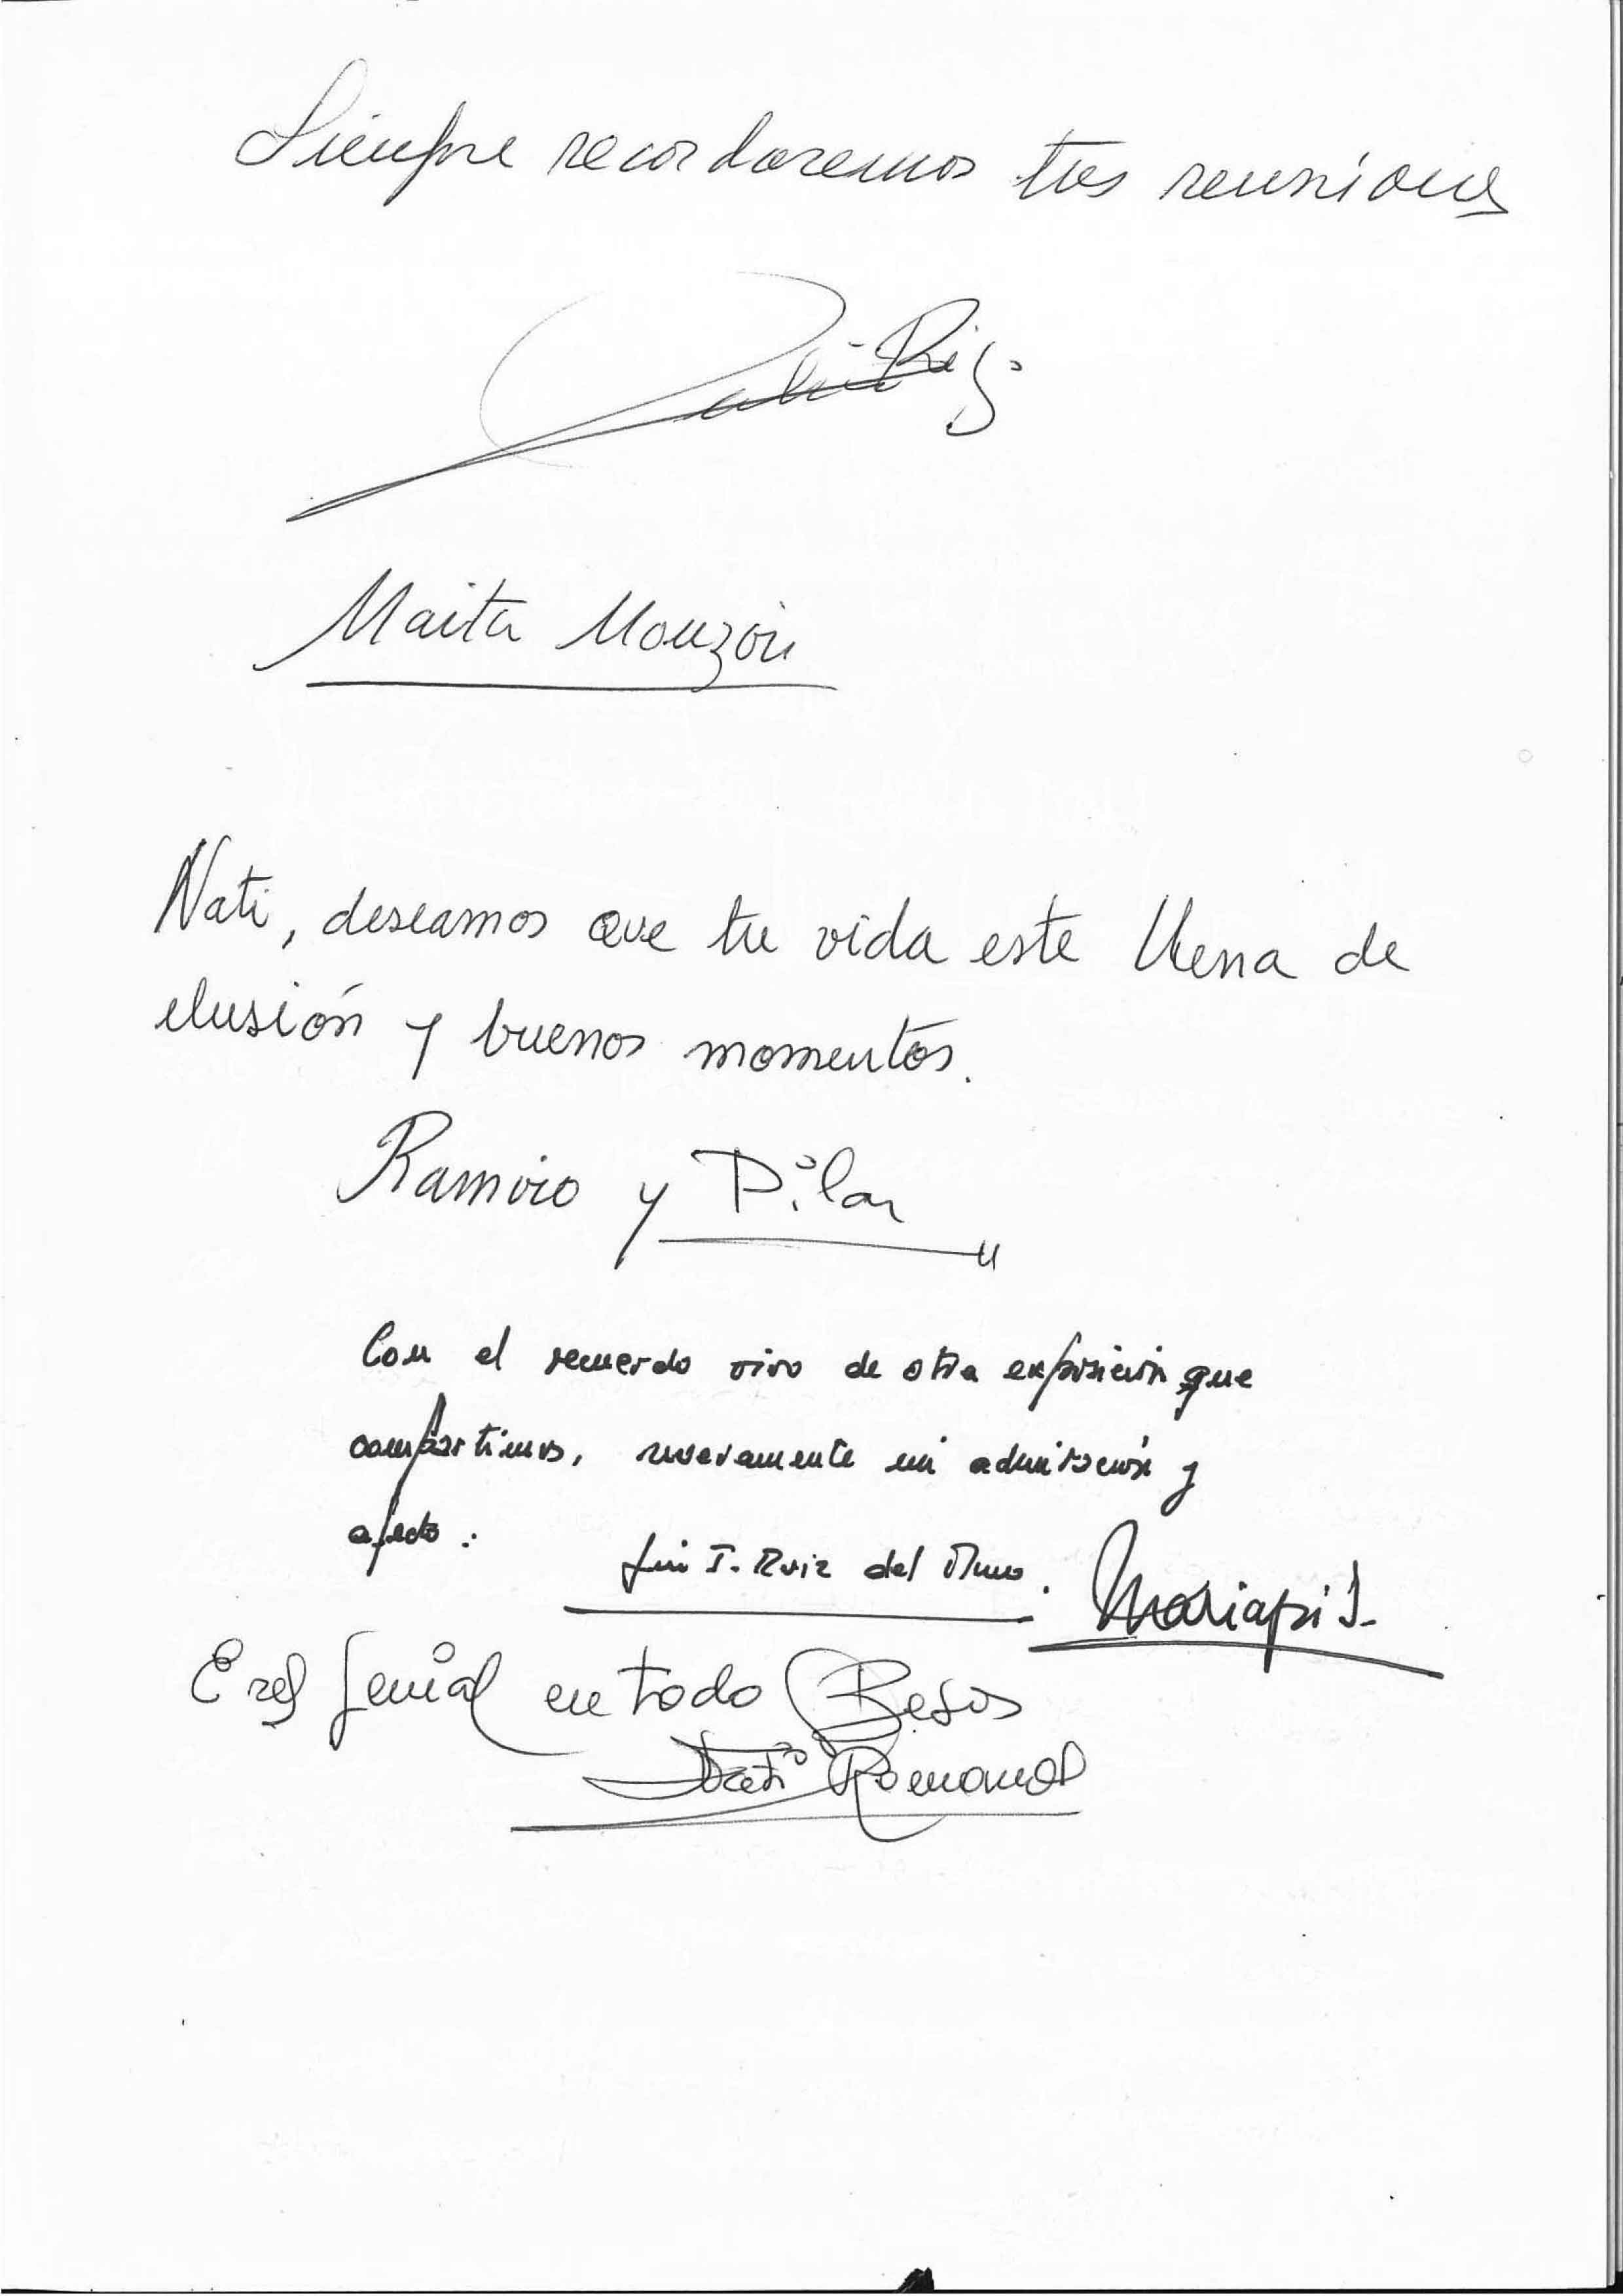 Siempre recordaremos tus reuniones
Maita Monzón
Nati, deseamos que tu vida este llena de
ilusión y buenos momentos.
Ramiro y Pilar
Con el recuerdo vivo de otra exposición que
compartimos, nuevamente mi admiración y
afecto :
Luis I. Ruiz del
Mariapi
Eres genial en todo Besos
Romanos